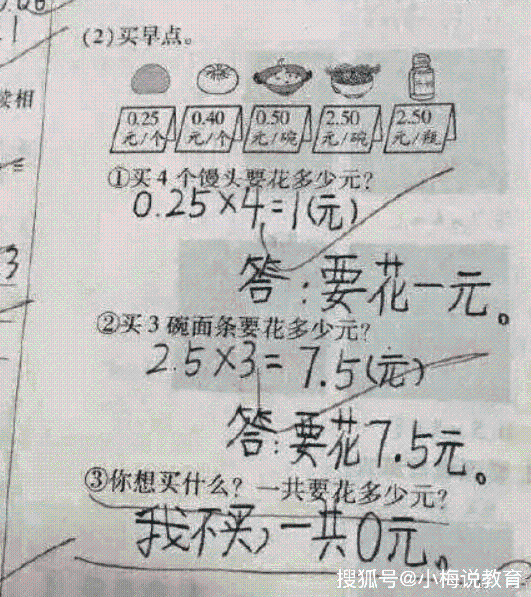 (2)买早点。
0.25 0.40 0.50 2.50 2.50
元/个 元/个 元/碗 元/碗 元/瓶
①买4个馒头要花多少元?
0.25×4=1(元)
答:要花一元。
②买3碗面条要花多少元?
2.5×3=7.5(元)
答:要花7.5元。
③你想买什么?一共要花多少元?
我不买,一共0元。
搜狐号@小梅说教育